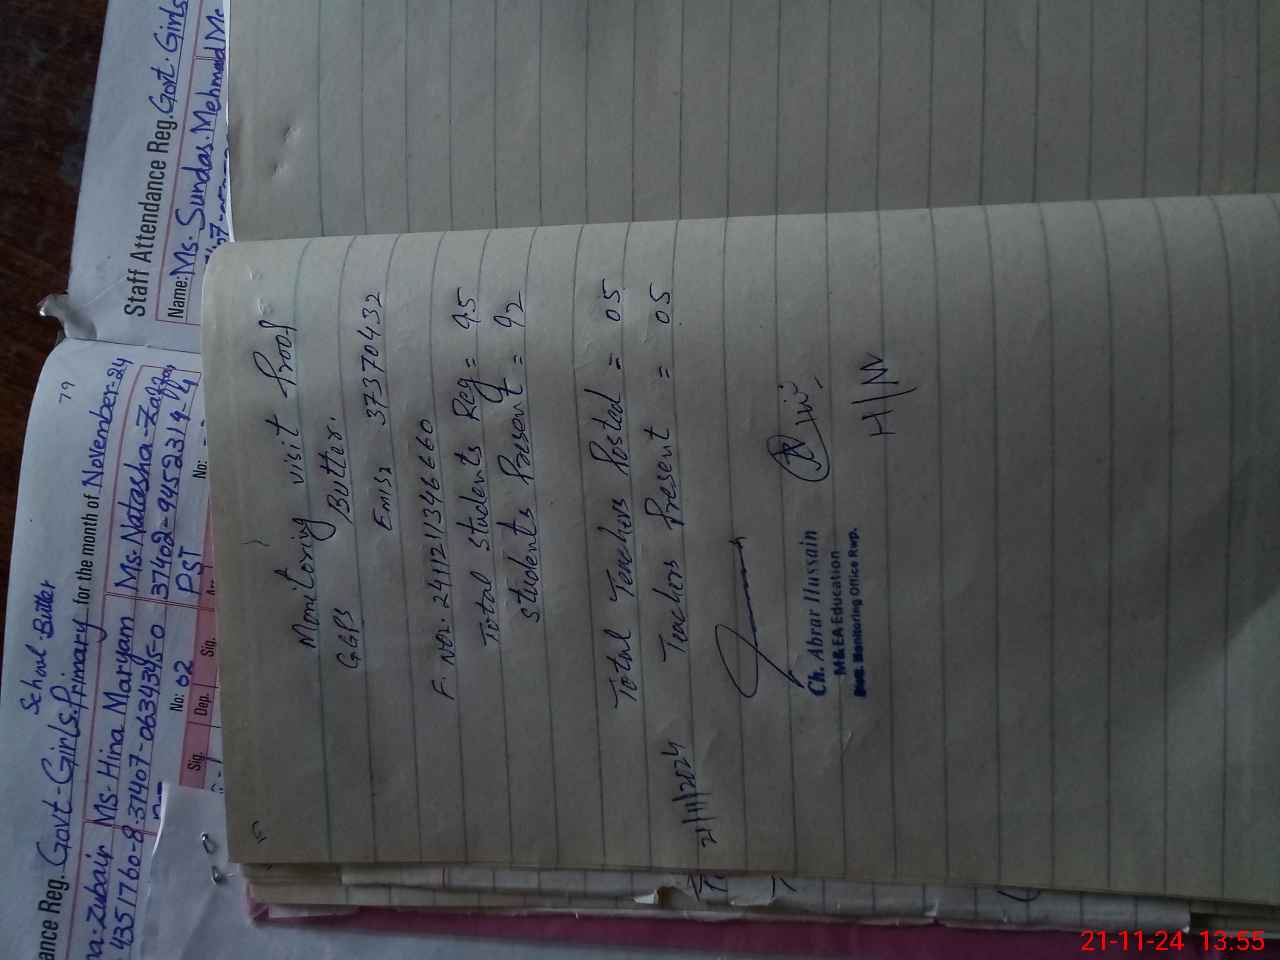 Monitoring visit Proof
GGPS Butter.
Emis: 37370432
F. No. 241121346660
Total Students Reg = 95
Students Present = 92
Total Teachers Posted = 05
Teachers Present = 05
21/11/2024
Ch. Abrar Hussain
M&EA Education
Monitoring Office Rwp.
H/M
School Butter
79
ance Reg. Govt. Girls. Primary for the month of November-24
Zubair Ms. Hina Maryam Ms. Natasha
4351760-8 37407-0634345-0 37402-9452314-4
No: 02 PST No:
Sig. Dep. Sig.
Staff Attendance Reg. Govt. Girls
Name: Ms. Sundas. Mehmood
21-11-24 13:55